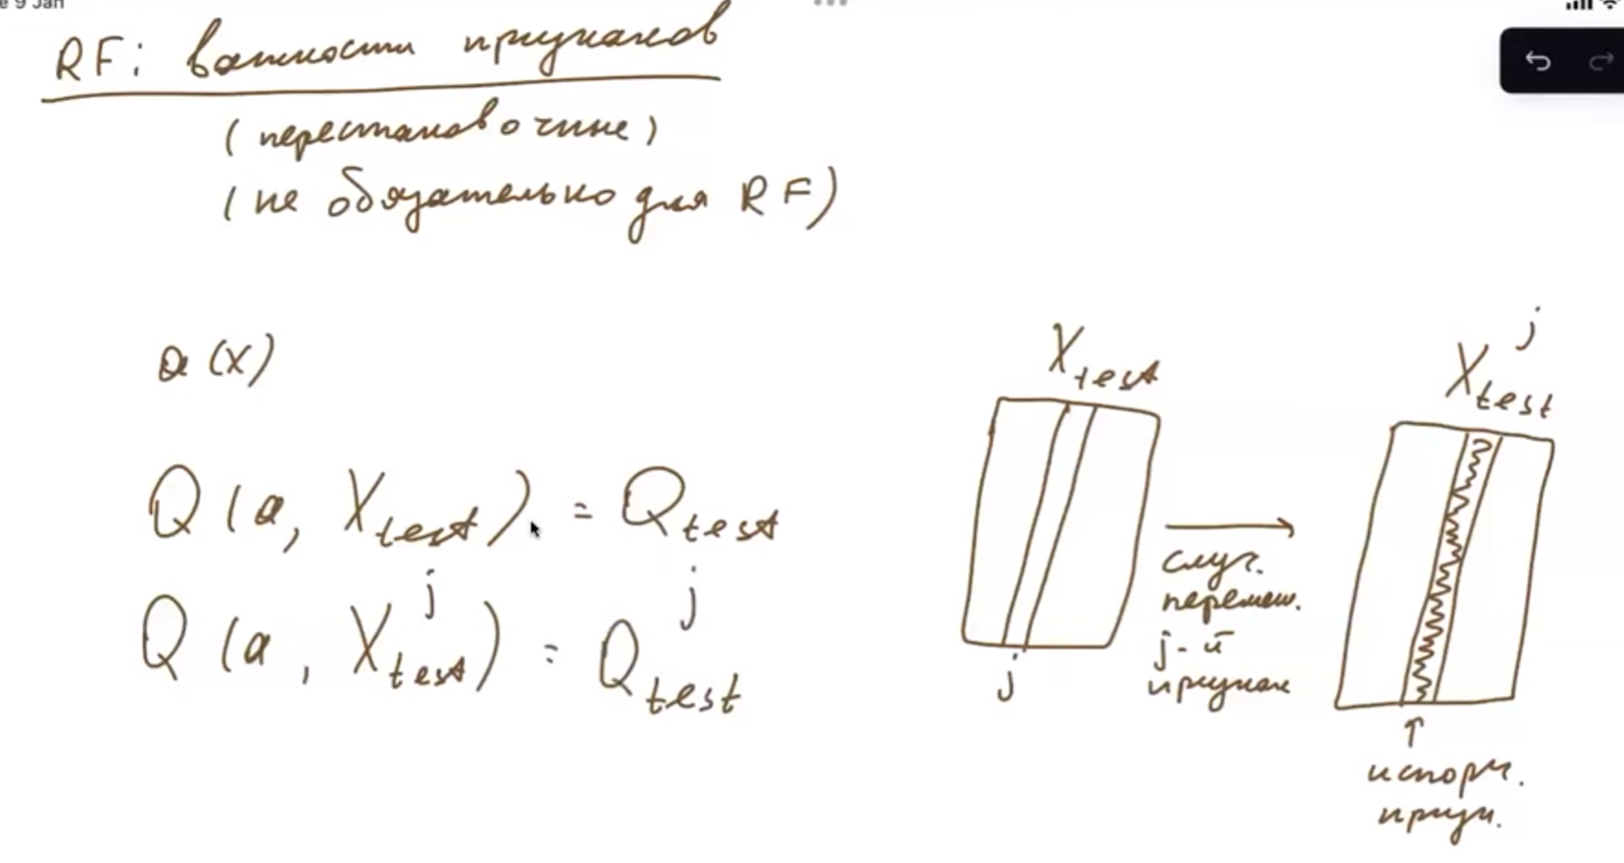 e 9 Jan
RF: важности признаков
(перестановочные)
(не обязательно для RF)
a(x)
Q(a, X_test) = Q_test
Q(a, X_test^j) = Q_test^j
X_test
j
случ.
перемеш.
j-й
признак
X_test^j
↑
испорч.
призн.